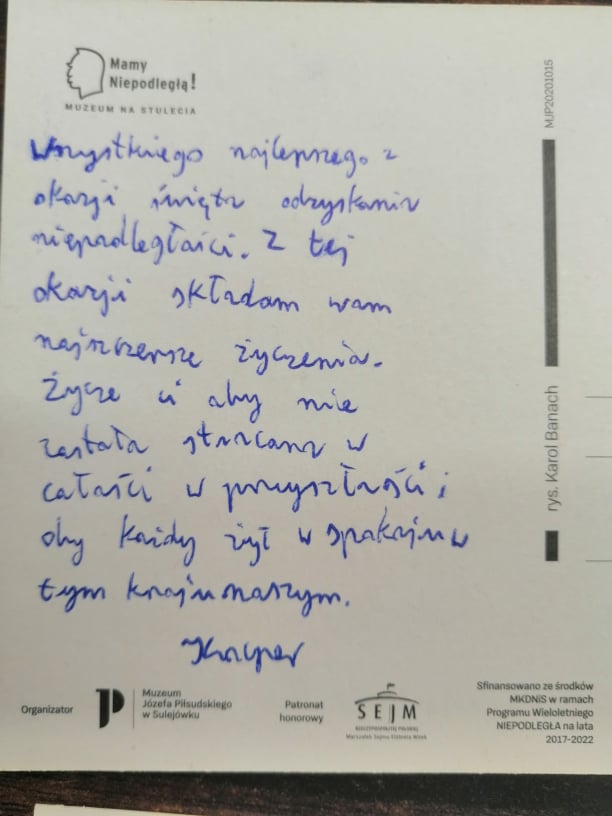 Mamy
Niepodległą!
MUZEUM NA STULECIA
Wszystkiego najlepszego z
okazji święta odzyskania
niepodległości. Z tej
okazji składam wam
najszczersze życzenia.
Życze ci aby nie
została stracana w
całości w przyszłości i
oby każdy żył w spokoju w
tym kraju naszym.
Kacper
MJP20201015
rys. Karol Banach
Organizator
Muzeum
Józefa Piłsudskiego
w Sulejówku
Patronat
honorowy
SEJM
RZECZYPOSPOLITEJ POLSKIEJ
Marszałek Sejmu Elżbieta Witek
Sfinansowano ze środków
MKDNiS w ramach
Programu Wieloletniego
NIEPODLEGŁA na lata
2017-2022